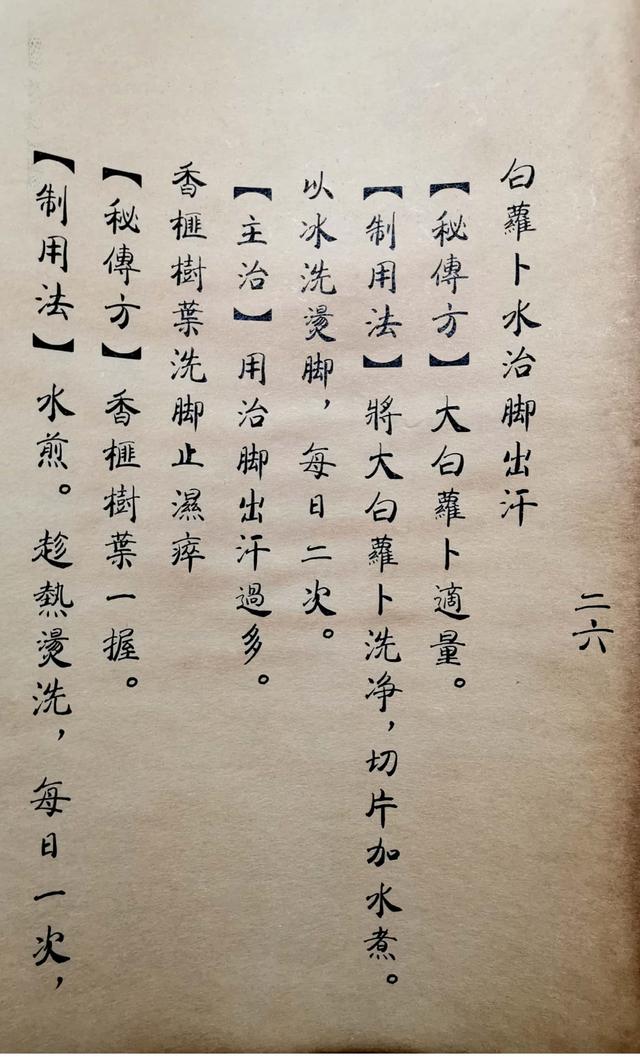 二六
白蘿卜水治脚出汗
【秘傳方】大白蘿卜適量。
【制用法】將大白蘿卜洗净，切片加水煮。
以冰洗燙脚，每日二次。
【主治】用治脚出汗過多。
香榧樹葉洗脚止濕瘁
【秘傳方】香榧樹葉一握。
【制用法】水煎。趁熱燙洗，每日一次，